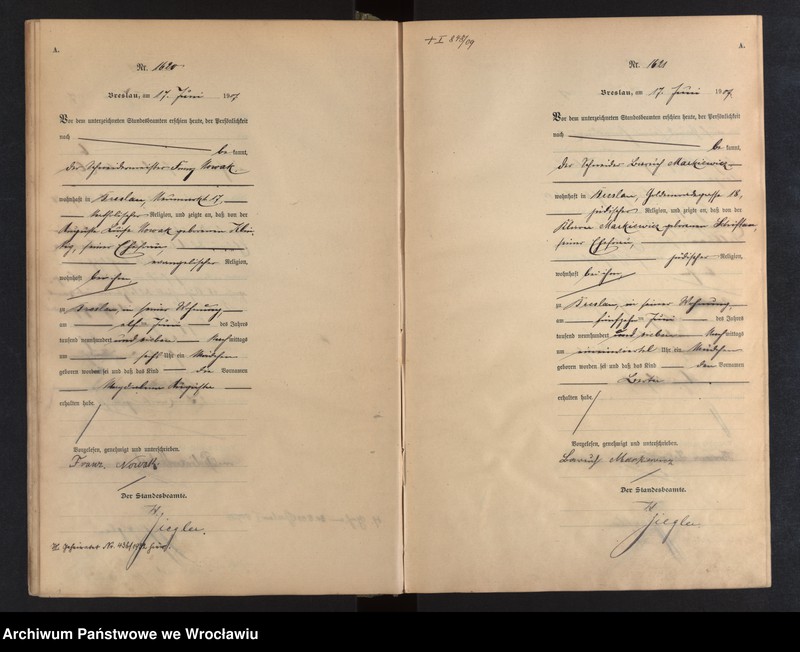 A.
Nr. 1620
Breslau, am 17. Juni 1907.
Vor dem unterzeichneten Standesbeamten erschien heute, der Persönlichkeit
nach
be kannt,
der Schneidermeister Franz Nowak
wohnhaft in Breslau, Neumarkt 17,
katholischer Religion, und zeigte an, daß von der
Auguste Nowak geborenen
seiner Ehefrau
evangelischer Religion,
wohnhaft bei ihm,
zu Breslau, in seiner Wohnung,
am elf Juni des Jahres
tausend neunhundert und sieben Nachmittags
um sechs Uhr ein Mädchen
geboren worden sei und daß das Kind die Vornamen
Magdalena Auguste
erhalten habe.
Vorgelesen, genehmigt und unterschrieben.
Franz Nowak
Der Standesbeamte.
Ziegler.
+ I
A.
Nr. 1621
Breslau, am 17. Juni 1907.
Vor dem unterzeichneten Standesbeamten erschien heute, der Persönlichkeit
nach
be kannt,
der Schneider Baruch Markiewicz
wohnhaft in Breslau, 18,
jüdischer Religion, und zeigte an, daß von der
Markiewicz geborenen
seiner Ehefrau,
jüdischer Religion,
wohnhaft bei ihm,
zu Breslau, in seiner Wohnung,
am fünfzehn Juni des Jahres
tausend neunhundert und sieben Nachmittags
um Uhr ein Mädchen
geboren worden sei und daß das Kind den Vornamen
erhalten habe.
Vorgelesen, genehmigt und unterschrieben.
Baruch Markiewicz
Der Standesbeamte.
Ziegler
Archiwum Państwowe we Wrocławiu